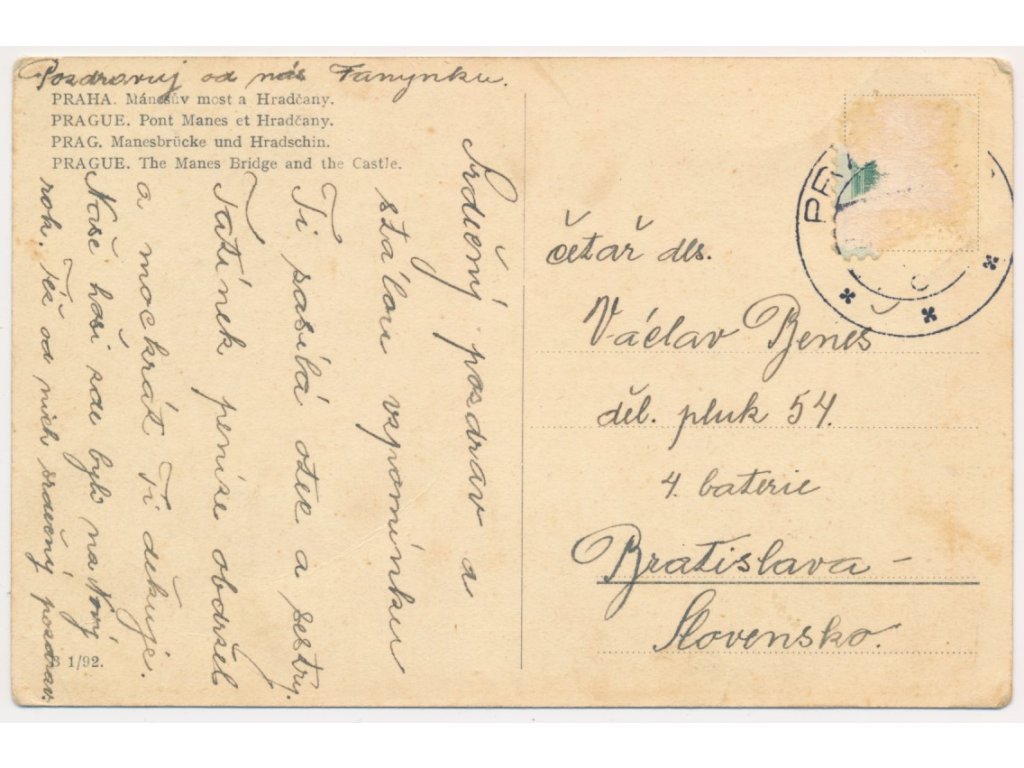 Pozdravuj od nás Fanynku.
PRAHA. Mánesův most a Hradčany.
PRAGUE. Pont Manes et Hradčany.
PRAG. Manesbrücke und Hradschin.
PRAGUE. The Manes Bridge and the Castle.
Srdečný pozdrav a
stálou vzpomínku
Ti zasílá otec a sestry.
Tatínek peníze obdržel
a mockrát Ti děkuje.
Naše hoši zde byli na Nový
rok. Též od nich srdečný pozdrav.
B 1/92.
PRA
četař dls.
Václav Beneš
děl. pluk 54.
4. baterie
Bratislava –
Slovensko.